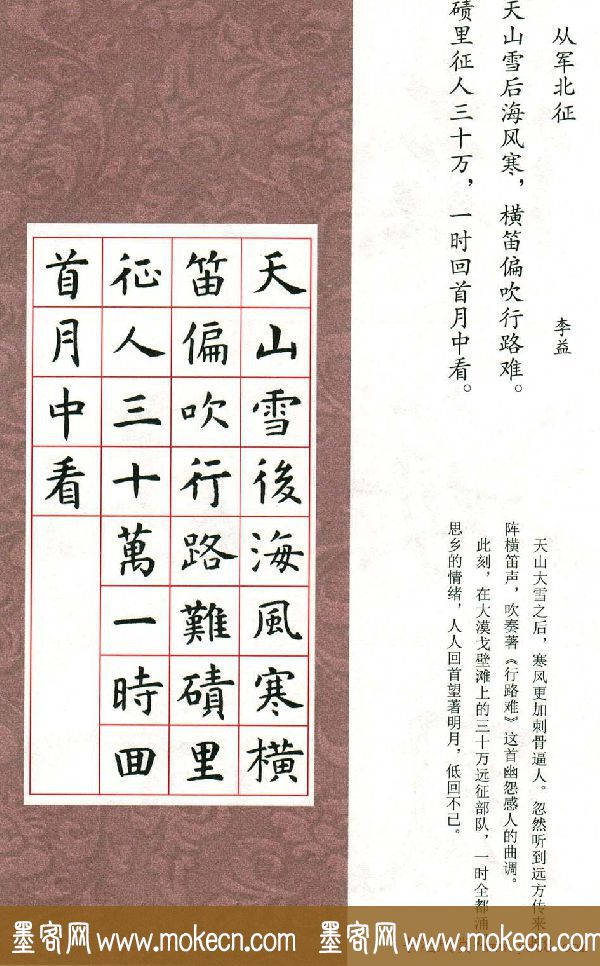 从军北征
李益
天山雪后海风寒，横笛偏吹行路难。
碛里征人三十万，一时回首月中看。
天山大雪之后，寒风更加刺骨逼人。忽然听到远方传来
阵横笛声，吹奏著《行路难》这首幽怨感人的曲调。
此刻，在大漠戈壁滩上的三十万远征部队，一时全都涌
思乡的情绪，人人回首望著明月，低回不已。
天山雪後海風寒橫
笛偏吹行路難磧里
征人三十萬一時回
首月中看
墨客网 www.mokecn.com 墨客网 www.mokecn.com